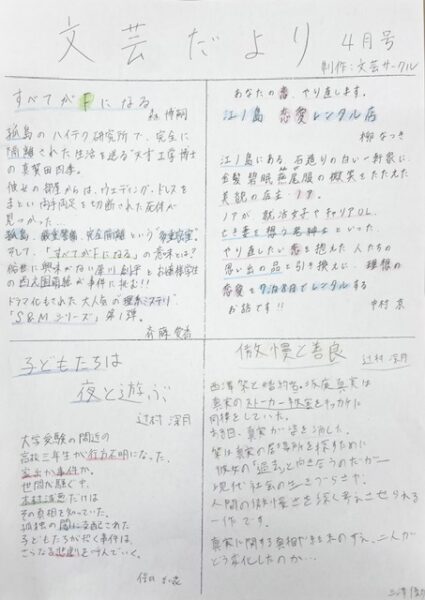 文芸だより 4月号
制作:文芸サークル
すべてがFになる
森 博嗣
孤島のハイテク研究所で、完全に
隔離された生活を送る天才工学博士
の真賀田四季。
彼女の部屋からは、ウェディング・ドレスを
まとい両手両足を切断された死体が
見つかった…
孤島、厳重警備、完全隔離という
そして、「すべてがFになる」の意味とは?
に興味がない犀川創平とお嬢様学生
の西之園萌絵が事件に挑む!!
ドラマ化もされた大人気の"理系ミステリ"
「S&Mシリーズ」第1弾。
あなたの恋、やり直します。
江ノ島 恋愛レンタル店
柳 なつき
江ノ島にある 石造りの白い一軒家に、
金髪碧眼、燕尾服の微笑をたたえた
美貌の店主・ノア。
ノアが、就活女子やキャリアOL、
亡き妻を想う老紳士といった、
やり直したい恋を抱えた人たちの
思い出の品と引き換えに、理想の
恋愛を7泊8日でレンタルする
お話です!!
中村
子どもたちは
夜と遊ぶ
辻村 深月
大学受験の間近の
高校三年生が行方不明になった。
家出か事件か。
世間が騒ぐ中、
木村浅葱だけは
その真相を知っていた。
孤独の闇に支配された
子どもたちが招く事件は、
さらなる悲劇を呼んでいく。
傲慢と善良
辻村 深月
西澤架と婚約者・坂庭真実は
真実のストーカー事件をキッカケに
同棲をしていた。
ある日、真実が姿を消した。
架は真実の居場所を探すために
彼女の「過去」と向き合うのだが…
現代社会の生きづらさや、
人間の傲慢さを深く考えさせられる
一作です。
真実に関する真相
どう変化したのか…